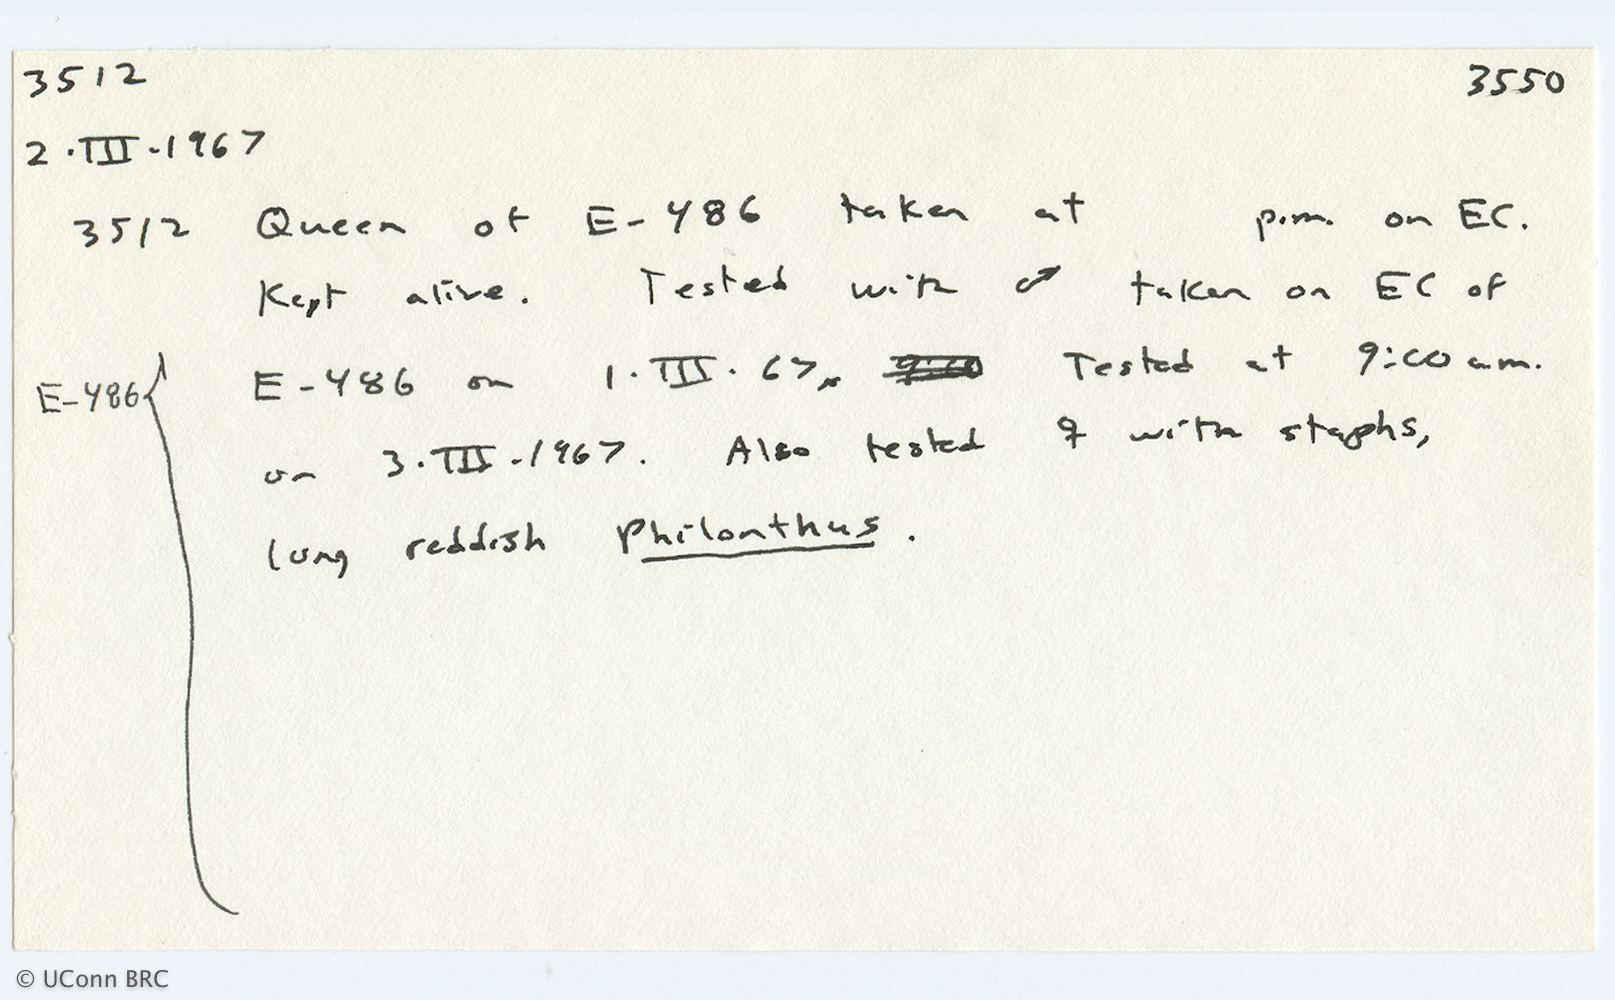 3512 3550
2·III·1967
3512 Queen of E-486 taken at p.m. on EC.
Kept alive. Tested with ♂ taken on EC of
E-486 E-486 on 1·III·67. Tested at 9:00 am.
on 3·III·1967. Also tested ♀ with staphs,
long reddish Philonthus.
© UConn BRC